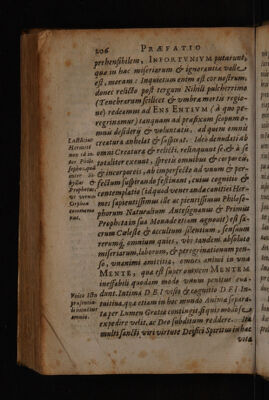 206 PRÆFATIO
prehensibilem, INFORTVNIVM putarunt,
quia in hac miseriarum & ignorantiæ valle
est, meram: Inquietum enim est cor nostrum,
donec relicto post tergum Nihili pulcherrimo
(Tenebrarum scilicet & vmbræ mortis regio-
ne) redeamus ad ENS ENTIVM (à quo pe-
regrinamur) tanquam ad præfixum scopum o-
mnis desiderij & voluntatis, ad quem omnis
creatura anhelat & suspirat. Ideo denudati ab
omni Creatura & relicti, relinquunt se, & à se
totaliter exeunt, spretis omnibus & corporeis,
& incorporeis, ab imperfecto ad vnum & per-
fectum suspirando festinant, cuius cognitio &
contemplatio (id quod venerandæ canitiei Her-
mes sapientissimus ille ac pientissimus Philoso-
phorum Naturalium Antesignanus & Primus
Propheta in sua Monade etiam agnouit) est sa-
crum Cæleste & occultum silentium, sensuum
rerumq; omnium quies, vbi tandem absoluto
miseriarum, laborum, & peregrinationum pen-
so, vnanimi amicitia, omnes animi in vna
MENTE, quæ est super omnem MENTEM
ineffabili quodam modo vnum penitus eua-
dunt. Intima DEI visio & cognitio DEI In-
tuitiua, quæ etiam in hoc mundo Animæ separa-
tæ per Lumen Gratiæ contingit, si quis modo se
expedire velit, ac Deo subditum reddere. Ita
multi sancti viri virtute Deifici Spiritus in hac
vita
Hermetis
& verum